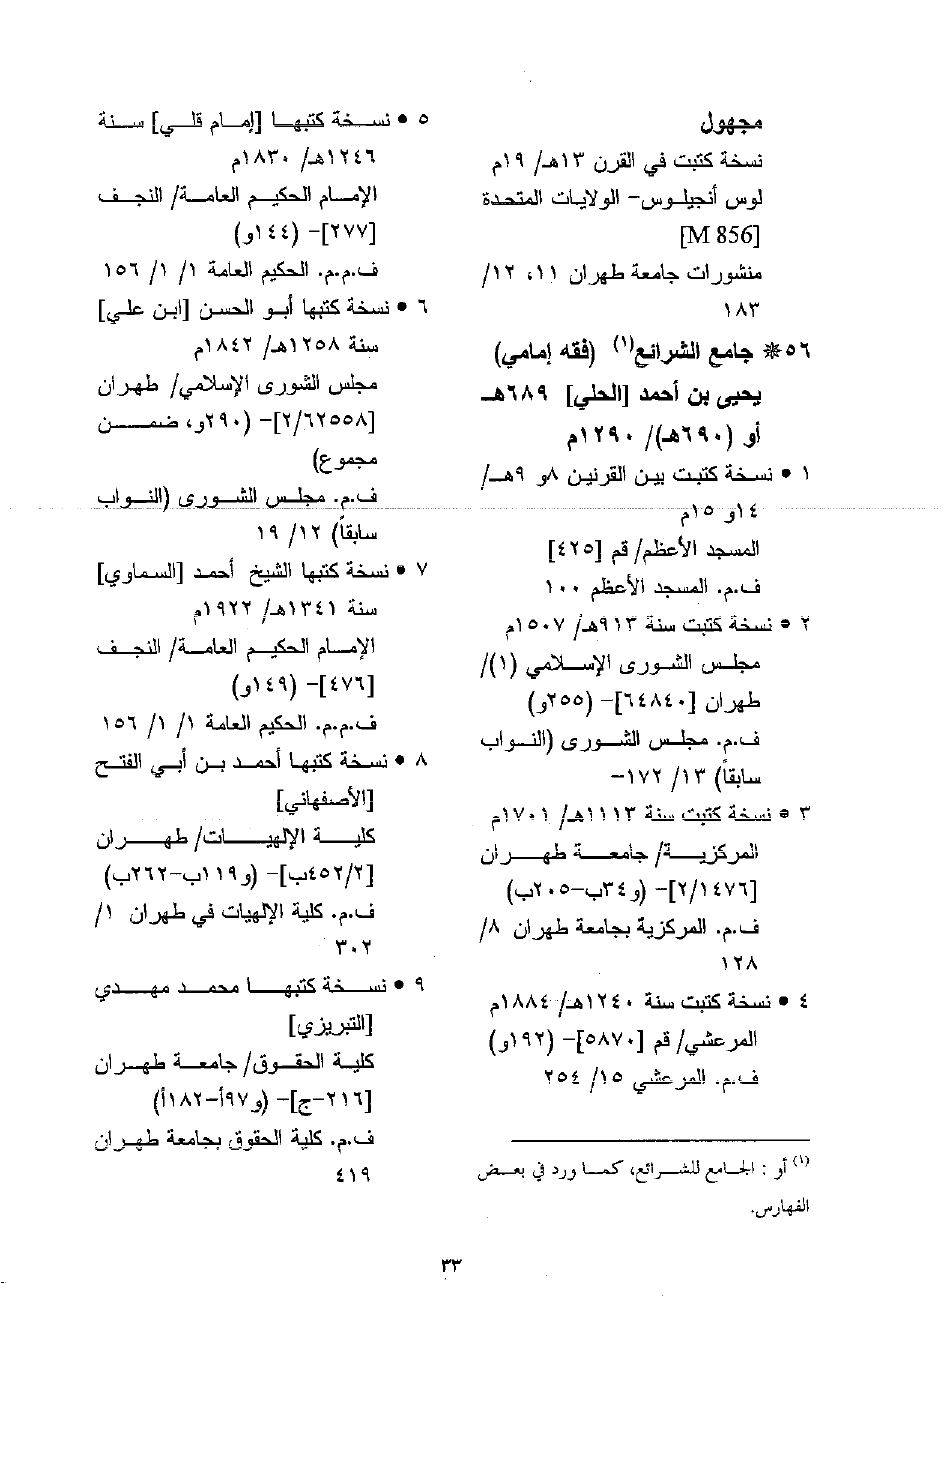 مجهول
نسخة كتبت في القرن ١٣هـ/ ١٩م
لوس أنجيلوس- الولايات المتحدة
[M 856]
منشورات جامعة طهران ١١، ١٢/
١٨٣
٥٦* جامع الشرائع(١) (فقه إمامي)
يحيى بن أحمد [الحلي] ٦٨٩هـ
أو (٦٩٠هـ)/ ١٢٩٠م
١ • نسخة كتبت بين القرنين ٨و ٩هـ/
١٤و ١٥م
المسجد الأعظم/ قم [٤٢٥]
ف.م. المسجد الأعظم ١٠٠
٢ • نسخة كتبت سنة ٩١٣هـ/ ١٥٠٧م
مجلس الشورى الإسلامي (١)/
طهران [٦٤٨٤٠]- (٢٥٥و)
ف.م. مجلس الشورى (النواب
سابقاً) ١٣/ ١٧٢-
٣ • نسخة كتبت سنة ١١١٣هـ/ ١٧٠١م
المركزية/ جامعة طهران
[٢/١٤٧٦]- (و٣٤ب-٢٠٥ب)
ف.م. المركزية بجامعة طهران ٨/
١٢٨
٤ • نسخة كتبت سنة ١٢٤٠هـ/ ١٨٨٤م
المرعشي/ قم [٥٨٧٠]- (١٩٢و)
ف.م. المرعشي ١٥/ ٢٥٤
(١) أو : الجامع للشرائع، كما ورد في بعض
الفهارس.
٥ • نسخة كتبها [إمام قلي] سنة
١٢٤٦هـ/ ١٨٣٠م
الإمام الحكيم العامة/ النجف
[٢٧٧]- (١٤٤و)
ف.م.م. الحكيم العامة ١/ ١/ ١٥٦
٦ • نسخة كتبها أبو الحسن [ابن علي]
سنة ١٢٥٨هـ/ ١٨٤٢م
مجلس الشورى الإسلامي/ طهران
[٢/٦٢٥٥٨]- (٢٩٠و، ضمن
مجموع)
ف.م. مجلس الشورى (النواب
سابقاً) ١٢/ ١٩
٧ • نسخة كتبها الشيخ أحمد [السماوي]
سنة ١٣٤١هـ/ ١٩٢٢م
الإمام الحكيم العامة/ النجف
[٤٧٦]- (١٤٩و)
ف.م.م. الحكيم العامة ١/ ١/ ١٥٦
٨ • نسخة كتبها أحمد بن أبي الفتح
[الأصفهاني]
كلية الإلهيات/ طهران
[٤٥٢/٢ب]- (و١١٩ب-٢٦٢ب)
ف.م. كلية الإلهيات في طهران ١/
٣٠٢
٩ • نسخة كتبها محمد مهدي
[التبريزي]
كلية الحقوق/ جامعة طهران
[٢١٦-ج]- (و٩٧أ-١٨٢أ)
ف.م. كلية الحقوق بجامعة طهران
٤١٩
٣٣